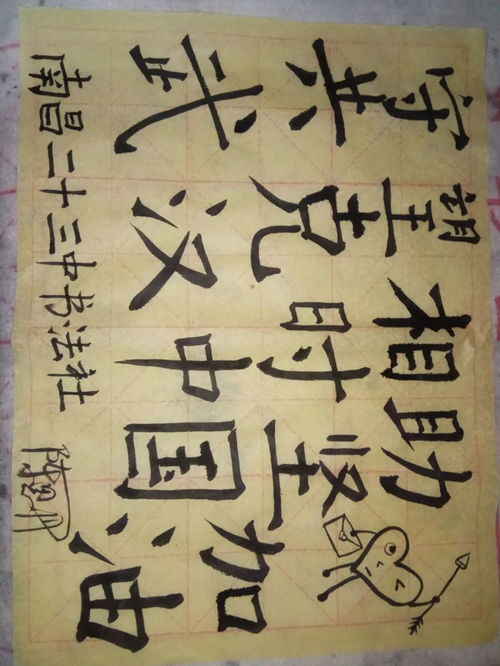 守望相助
共克时坚
武汉中国加油
南昌二十三中书法社